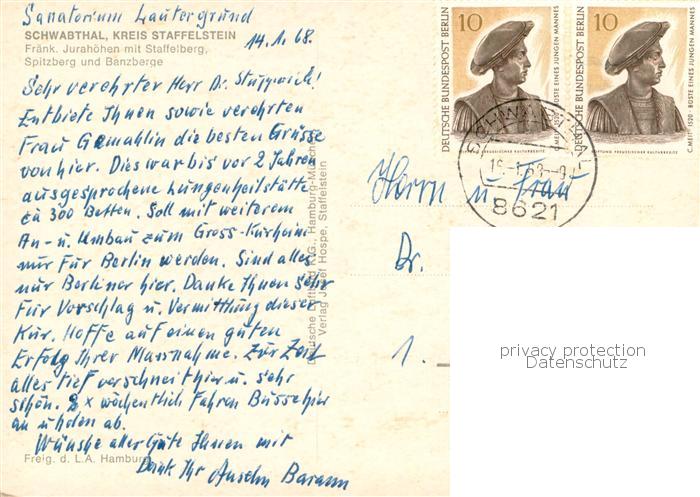 Sanatorium Lautergrund
SCHWABTHAL, KREIS STAFFELSTEIN
14.1.68.
Fränk. Jurahöhen mit Staffelberg,
Spitzberg und Banzberge
Sehr verehrter Herr Dr.
Entbiete Ihnen sowie verehrten
Frau Gemahlin die besten Grüsse
von hier. Dies war bis vor 2 Jahren
ausgesprochene Lungenheilstätte
ca 300 Betten. Soll mit weiterem
An- u. Umbau zum Gross-Kurheim
nur für Berlin werden. Sind alles
nur Berliner hier. Danke Ihnen sehr
für Vorschlag u. Vermittlung dieser
Kur. Hoffe auf einen guten
Erfolg Ihrer Massnahme. Zur Zeit
alles tief verschneit hier u. sehr
schön. 2 x wöchentlich fahren Busse hier
an u holen ab.
Wünsche alles Gute Ihnen mit
Dank Ihr Anselm
Freig. d. L.A. Hamburg
KVG., Hamburg-München
Verlag Josef Hospe, Staffelstein
10
DEUTSCHE BUNDESPOST BERLIN
C. MEIT · 1520 · BÜSTE EINES JUNGEN MANNES
STIFTUNG PREUSSISCHER KULTURBESITZ
10
DEUTSCHE BUNDESPOST BERLIN
C. MEIT · 1520 · BÜSTE EINES JUNGEN MANNES
STIFTUNG PREUSSISCHER KULTURBESITZ
8621
Herrn u. Frau
Dr.
1.
privacy protection
Datenschutz